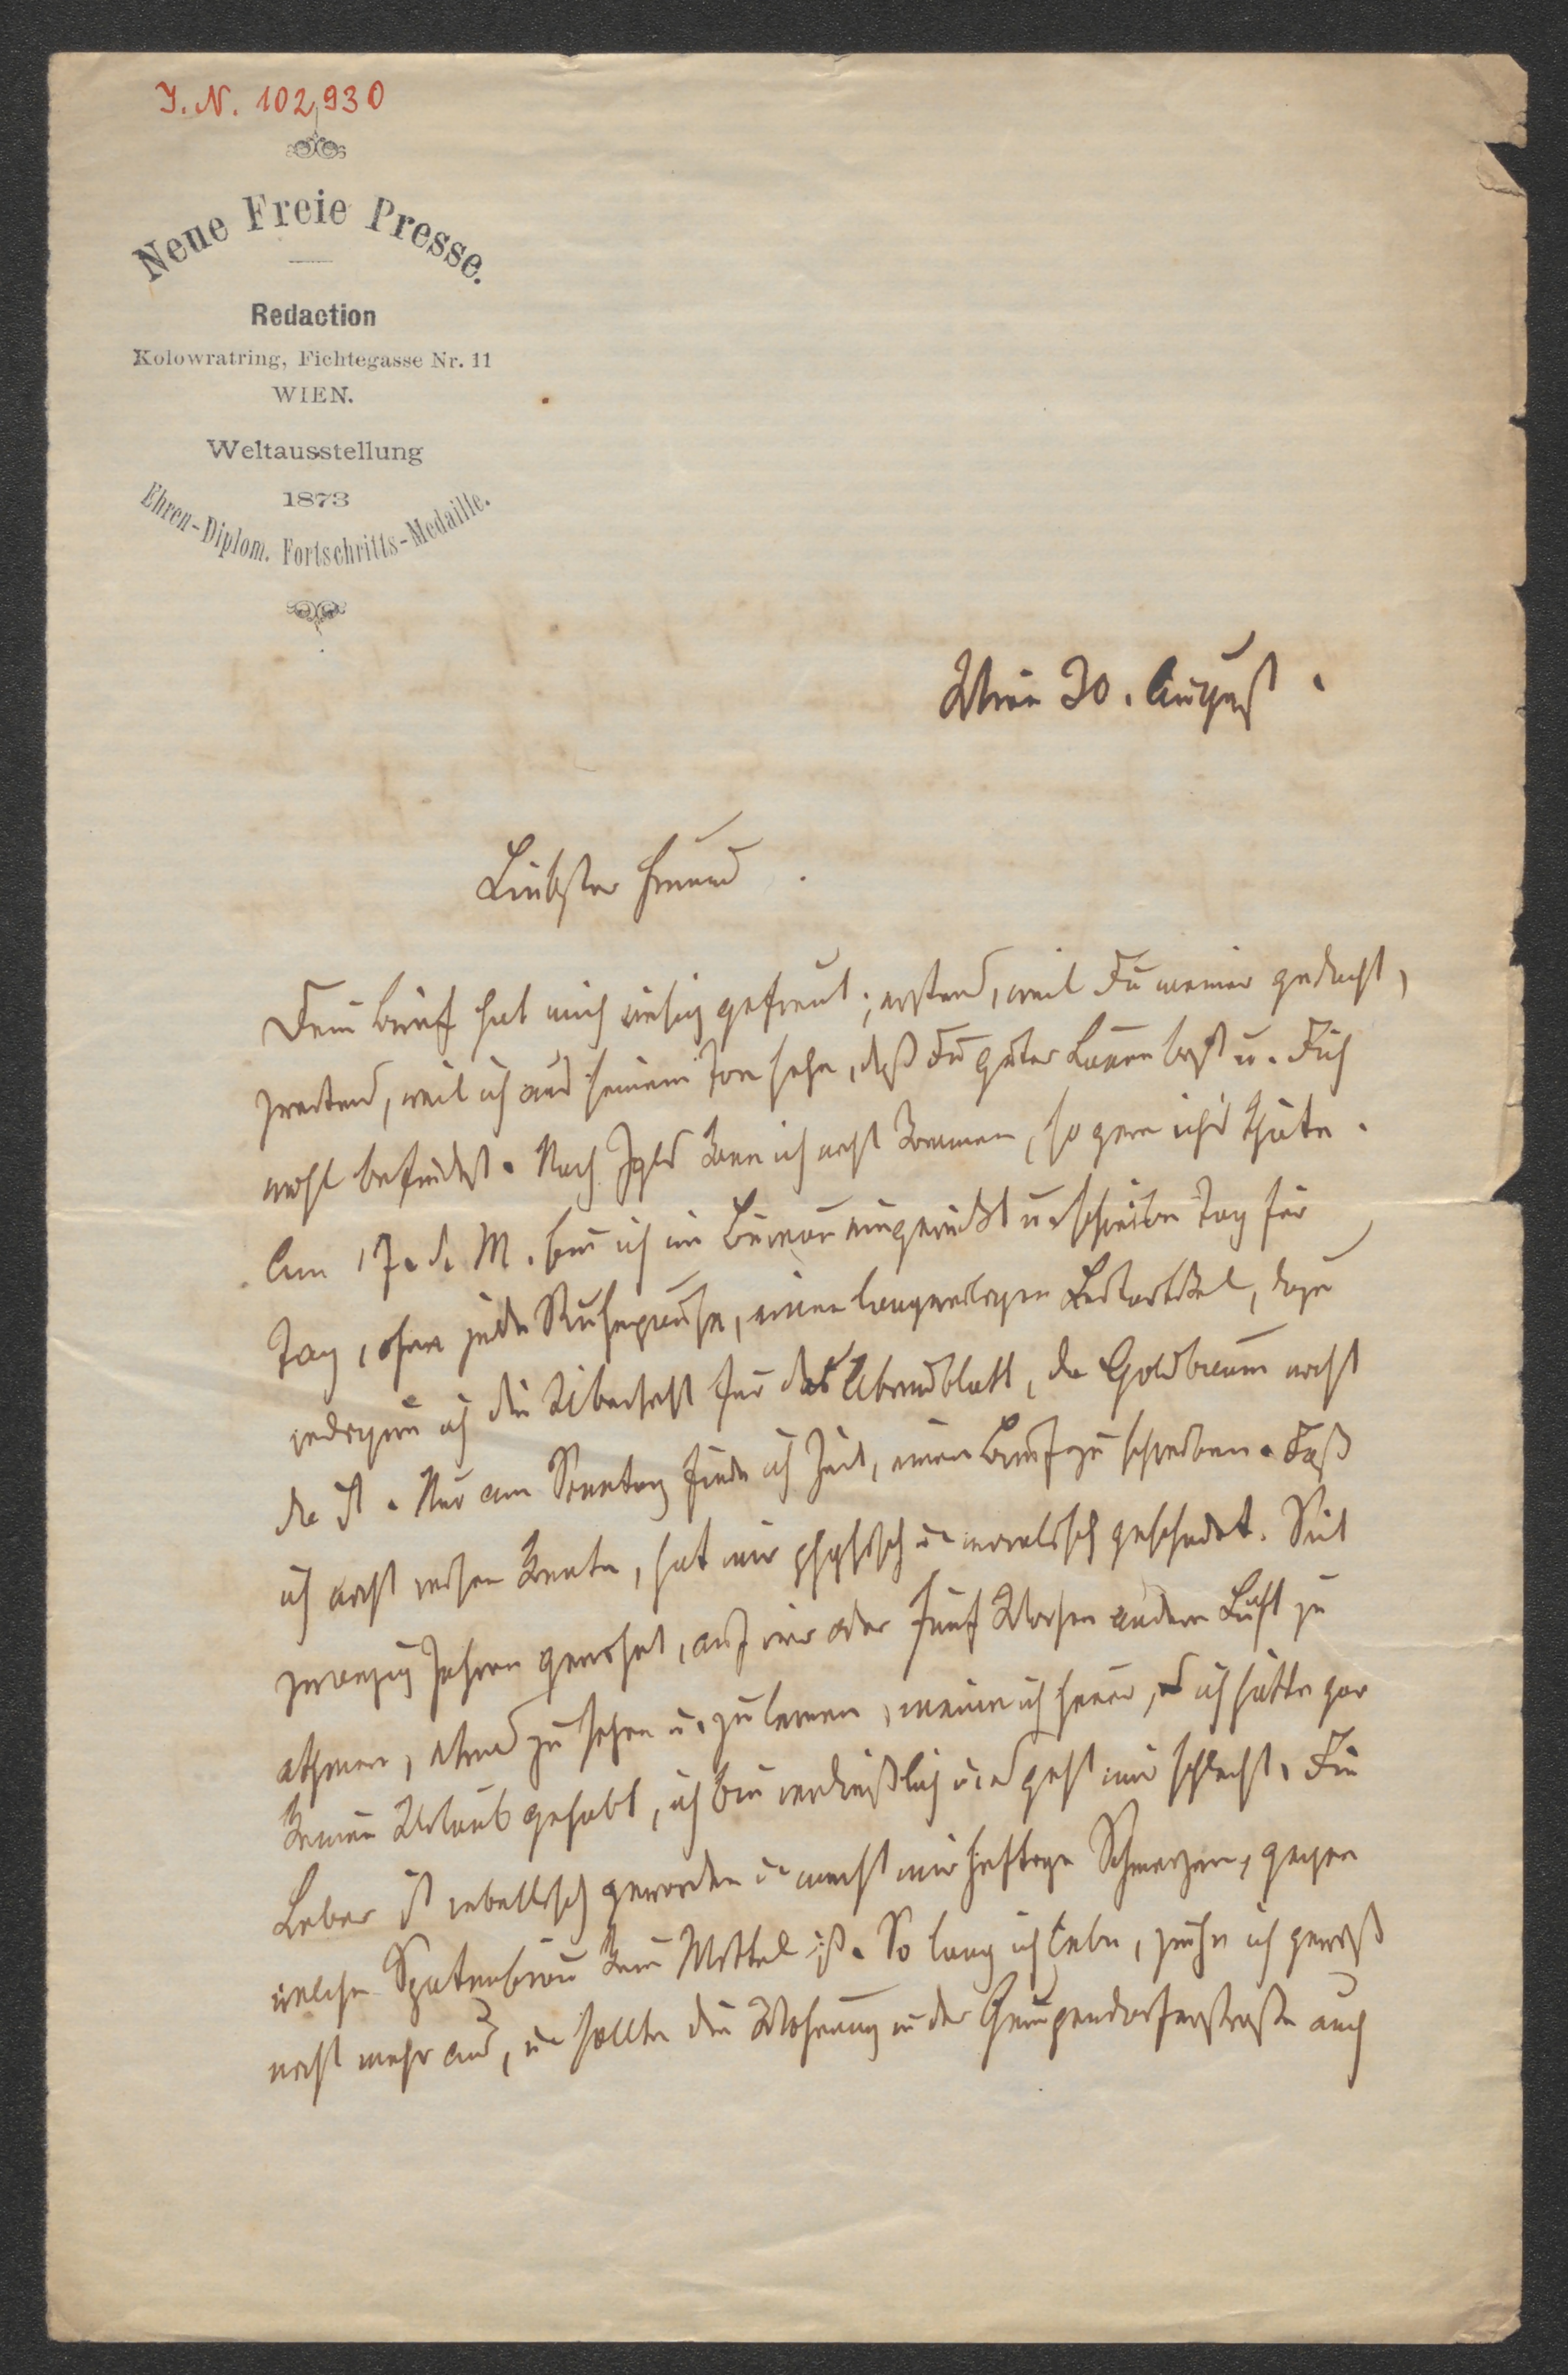 J. N. 102,930
Neue Freie Presse.
Redaction
Kolowratring, Fichtegasse Nr. 11
WIEN.
Weltausstellung
1873
Ehren-Diplom. Fortschritts-Medaille.
Wien 30. August.
Liebster Freund.
Dein Brief hat mich riesig gefreut; erstens, weil Du meiner gedacht,
zweitens, weil ich aus seinem Ton sehe, daß Du guter Laune bist u. Dich
wohl befindest. Nach Igls kann ich nicht kommen, so gern ich's thäte.
Am 17. d. M. bin ich im Bureau eingerückt u. schreibe Tag für
Tag, ohne jede Ruhepause, einen langweiligen Leitartikel, dazu
redigire ich die Uibersicht für das Abendblatt, da Goldbaum nicht
da ist. Nur am Sonntag finde ich Zeit, einen Brief zu schreiben. Daß
ich nicht reisen konnte, hat mir physisch u. moralisch geschadet. Seit
zwanzig Jahren gewohnt, auf vier oder fünf Wochen andere Luft zu
athmen, etwas zu sehen u. zu lernen, meine ich heuer, ich hätte gar
keinen Urlaub gehabt, ich bin verdrießlich u. es geht mir schlecht. Die
Leber ist rebellisch geworden u. macht mir heftige Schmerzen, gegen
welche Spatenbräu kein Mittel ist. So lang ich lebe, ziehe ich gewiß
nicht mehr aus, u. sollte die Wohnung in der Gumpendorferstraße auch